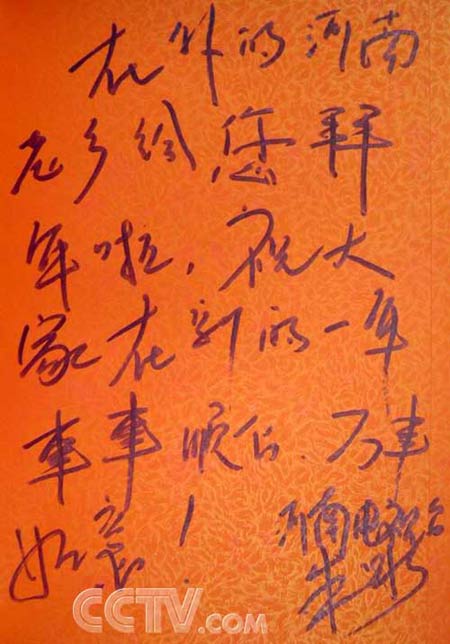 在外的河南
老乡给您拜
年啦，祝大
家在新的一年
事事顺、万事
如意！
河南电视台
朱
CCTV.com